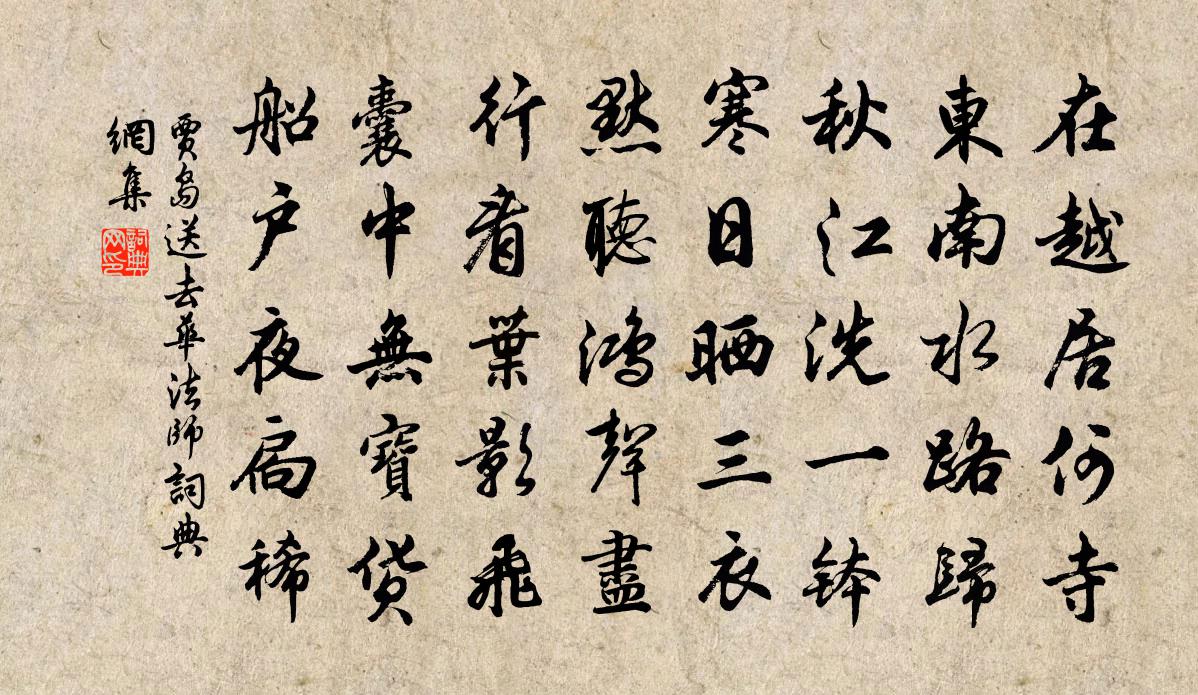 在越居何寺
東南水路歸
秋江洗一鉢
寒日晒三衣
默聽鴻聲盡
行看葉影飛
囊中無寶貨
船户夜扃稀
賈島送去華法師詞典
網集
詞典网印